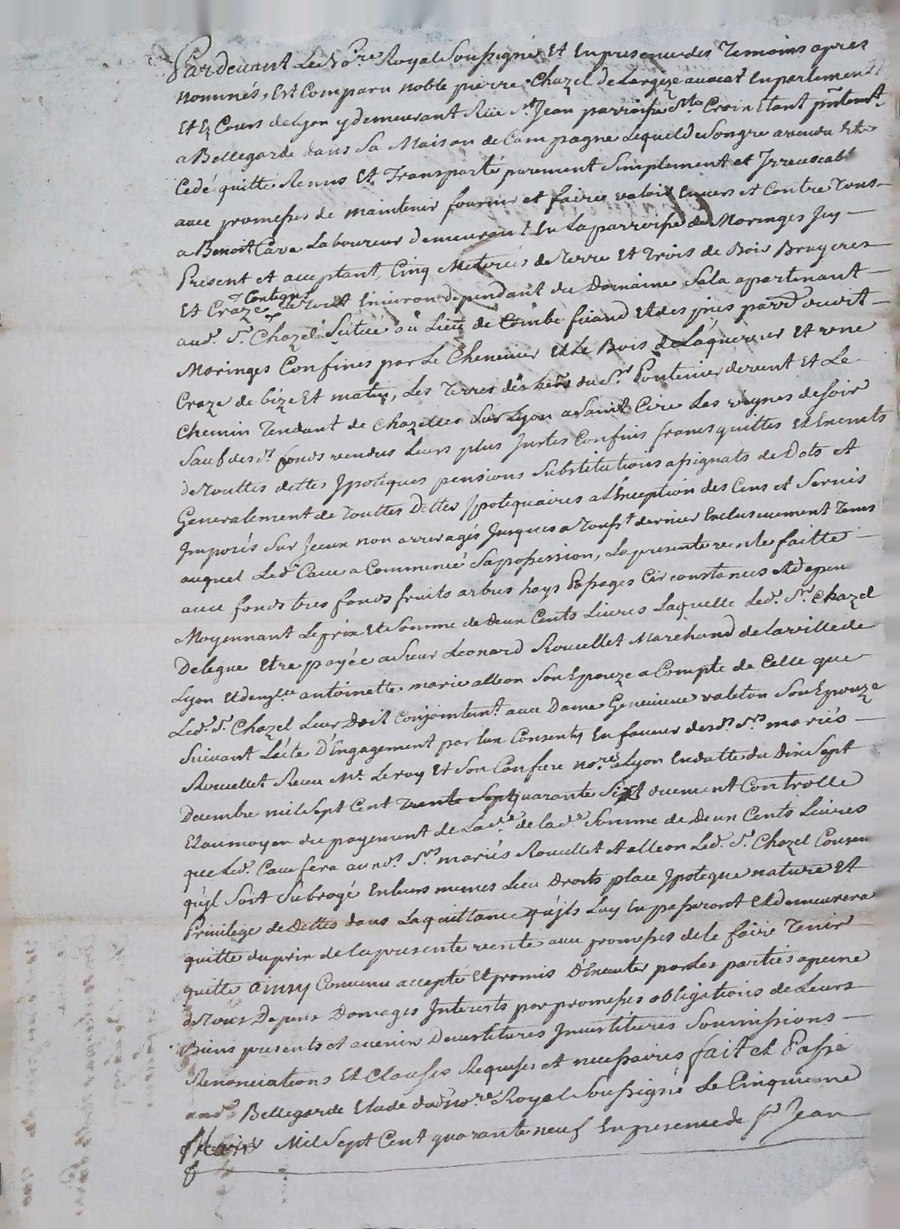 Pardevant Le No.re Royal Soussigné Et En presence des Temoins apres
nommés, Est Comparu noble pierre Chazel De Largeze avocat En parlement
Et Es Cours de Lyon y demeurant Rüe St. Jean parroisse Ste Croix Etant pntement
a Bellegarde dans Sa Maison de Campagne Lequel de Son gre a vendu Et
Cedé quitté Remis Et Transporté purement Simplement et Irrevocablt
avec promesses de maintenir fournir et faire valoir Envers et Contre Tous
a Benoit Cave Laboureur demeurant En La parroisse de Maringes Icy
Present et acceptant, Cinq Meterées de Terre Et Trois de Bois Bruyeres
Et Craze Contigus Le tout Environ dependant du Domaine Sala apartenant
aud. Sr. Chazel Scitué au Lieu de Combe ficaud Et des pnes parr. dud.
Maringes Confinés par Le Chenevier Et Le Bois de L'aquereur Et une
Craze de bize Et matin, Les Terres des hers du Sr. Pontenier de vent Et Le
Chemin Tendant de Chazelles Sur Lyon a Saint Cire Les vignes de Soir
Sauf desd. fonds vendus Leurs plus Justes Confins francs quittes Et Exempts
de Touttes dettes Ipoteques pensions Substitutions assignats de Dots Et
Generalement de Touttes Dettes Ipotequaires a L'Exception des Cens et Servis
Imposés Sur Iceux non arreragés Jusques a Tousst dernier Exclusivement Tems
auquel Led. Cave a Commencé Sa possession, La presente vente faitte
avec fonds tres fonds fruits arbres hays Passages Circonstances Et depen
Moyennant Le prix Et Somme de Deux Cents Livres Laquelle Led. Sr. Chazel
Delegue Etre payée a Sieur Léonard Rouellet Marchand de La ville de
Lyon Et demzlle antoinette marie alleon Son Epouze a Compte de Celle que
Led. Sr. Chazel Leur Doit Conjointemt. avec Dame Genevieve valeton Son Epouze
Suivant L'acte D'Engagement par Eux Consenty En faveur desd. Srs. mariés
Rouellet Receu Me. Leroy Et Son Confrere nores a Lyon En datte du Dix Sept
Decembre mil Sept Cent Trente Sept quarante Sixt duement Controllé
Et au moyen du payement de La de. de lad. Somme de Deux Cents Livres
que Led. Cave fera auxd. Srs. mariés Rouellet et alleon Led. Sr. Chazel Consen
qu'il Soit Subrogé En Leurs memes Lieu Droits place Ipoteque nature Et
Privilege de Dettes dans La quittance qu'ils Luy En passeront et demeurera
quitte du prix de La presente vente avec promesses de le faire Tenir
quitte ainsy Convenu accepté Et promis D'Executer par Les parties a peine
de Tous Depens Domages Interets par promesses obligations de Leurs
Biens presents et avenir Devestitures Investitures Soumissions
Renonciations Et Clauses Requises et necessaires fait et Passé
aud. Bellegarde Etude dud. no.re Royal Soussigné Le Cinquieme
Mars Mil Sept Cent quarante neuf En presence de Sr. Jean